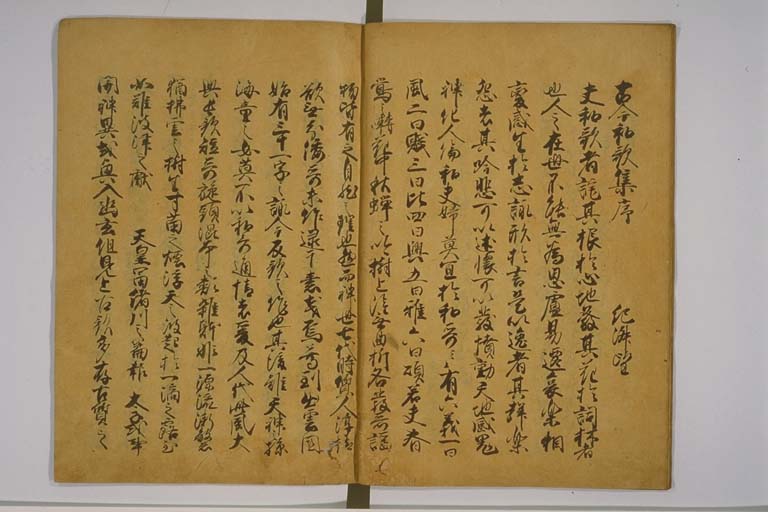 古今和歌集序 紀淑望
夫和歌者託其根於心地發其花於詞林者
也人之在世不能無為思慮易遷哀樂相
變感生於志詠形於言是以逸者其辞楽
怨者其吟悲可以述懐可以發憤動天地感鬼
神化人倫和夫婦莫宜於和哥々有六義一曰
風二曰賦三曰比四曰興五曰雅六曰頌若夫春
鶯之囀花中秋蝉之吟樹上雖無曲折各發哥謡
物皆有之自然之理也然而神世七代時質人淳情
欲無分倭哥未作逮于素戔烏尊到出雲国
始有三十一字之詠今反歌之作也其後雖天神孫
海童之女莫不以和哥通情者爰及人代此風大
興長歌短哥旋頭混本之類雑躰非一源流漸繁
猶拂雲之樹生寸苗之煙浮天之波起於一滴之露至
如難波津之献 天皇富緒川之篇報 太子或事
関神異或興入幽玄但見上古歌多存古質之